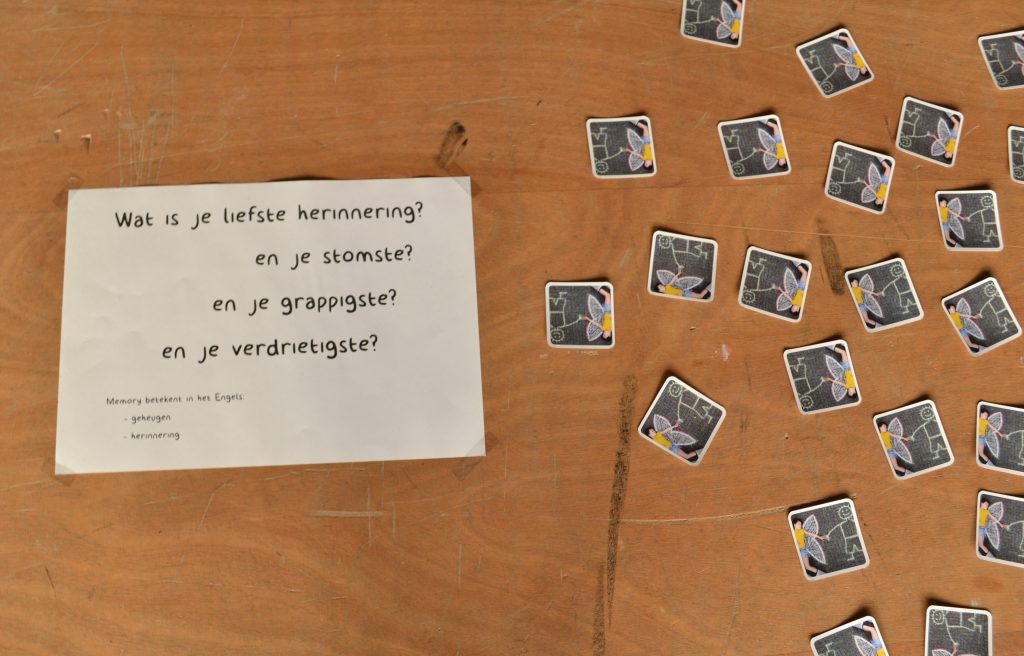 Wat is je liefste herinnering?
en je stomste?
en je grappigste?
en je verdrietigste?
Memory betekent in het Engels:
- geheugen
- herinnering